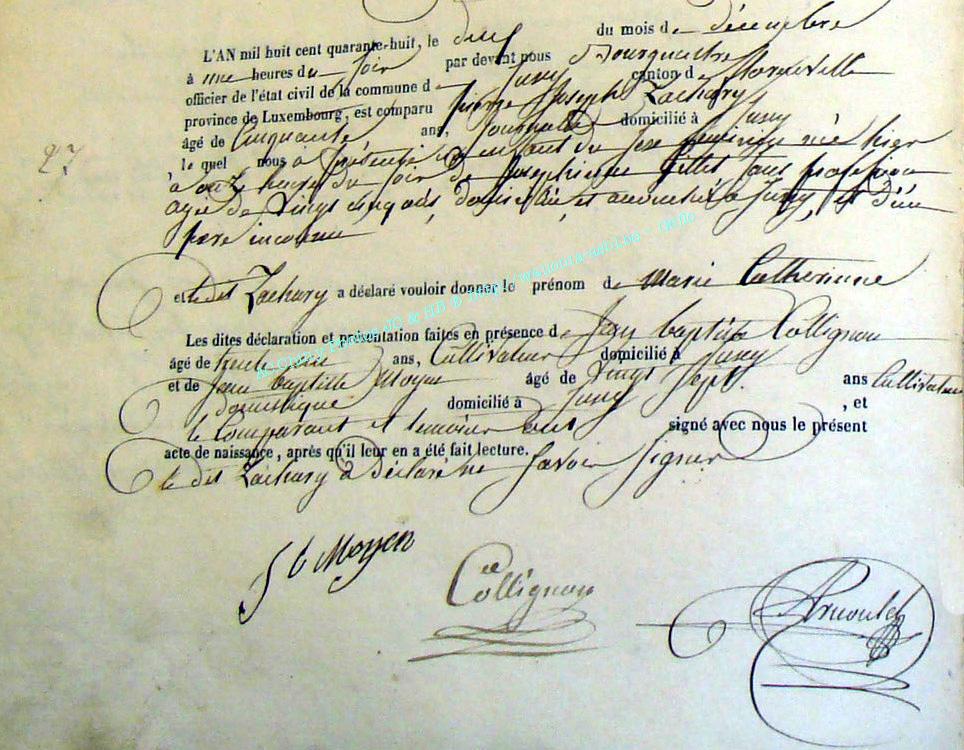 L'AN mil huit cent quarante-huit, le deux du mois de décembre
à une heures du soir par devant nous Bourguestre
officier de l'état civil de la commune de Jusey canton de
province de Luxembourg, est comparu pierre Joseph Zachary
âgé de Cinquante ans, Journallé domicilié à Jusey
, le quel nous a présenté un enfant du sexe feminin née hier
à onze heures du soir de Josephienne Gillet sans profession
agée de Vingt cinq ans, domiciliée, et accouchée à Jusey, et d'un
père inconnu
et le dit Zachary a déclaré vouloir donner le prénom de Marie Catherinne
Les dites déclaration et présentation faites en présence de Jean baptiste Collignon
âgé de trente ans, Cultivateur domicilié à Jusey
et de Jean baptiste Moyen âgé de Vingt Sept ans Cultivateur
domestique domicilié à Jusey , et
le Comparant et temoins ont signé avec nous le présent
acte de naissance, après qu'il leur en a été fait lecture.
le dit Zachary a déclaré ne savoir signer
27
J B Moyen
Collignon
Arnould